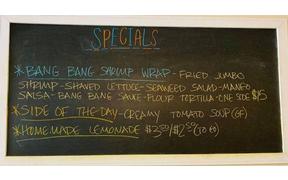 SPECIALS
*BANG BANG SHRIMP WRAP - FRIED JUMBO
SHRIMP - SHAVED LETTUCE - SEAWEED SALAD - MANGO
SALSA - BANG BANG SAUCE - FLOUR TORTILLA - ONE SIDE $15
*SIDE OF THE DAY - CREAMY TOMATO SOUP (GF)
*HOMEMADE LEMONADE $3.50/$2.50 (TO GO)